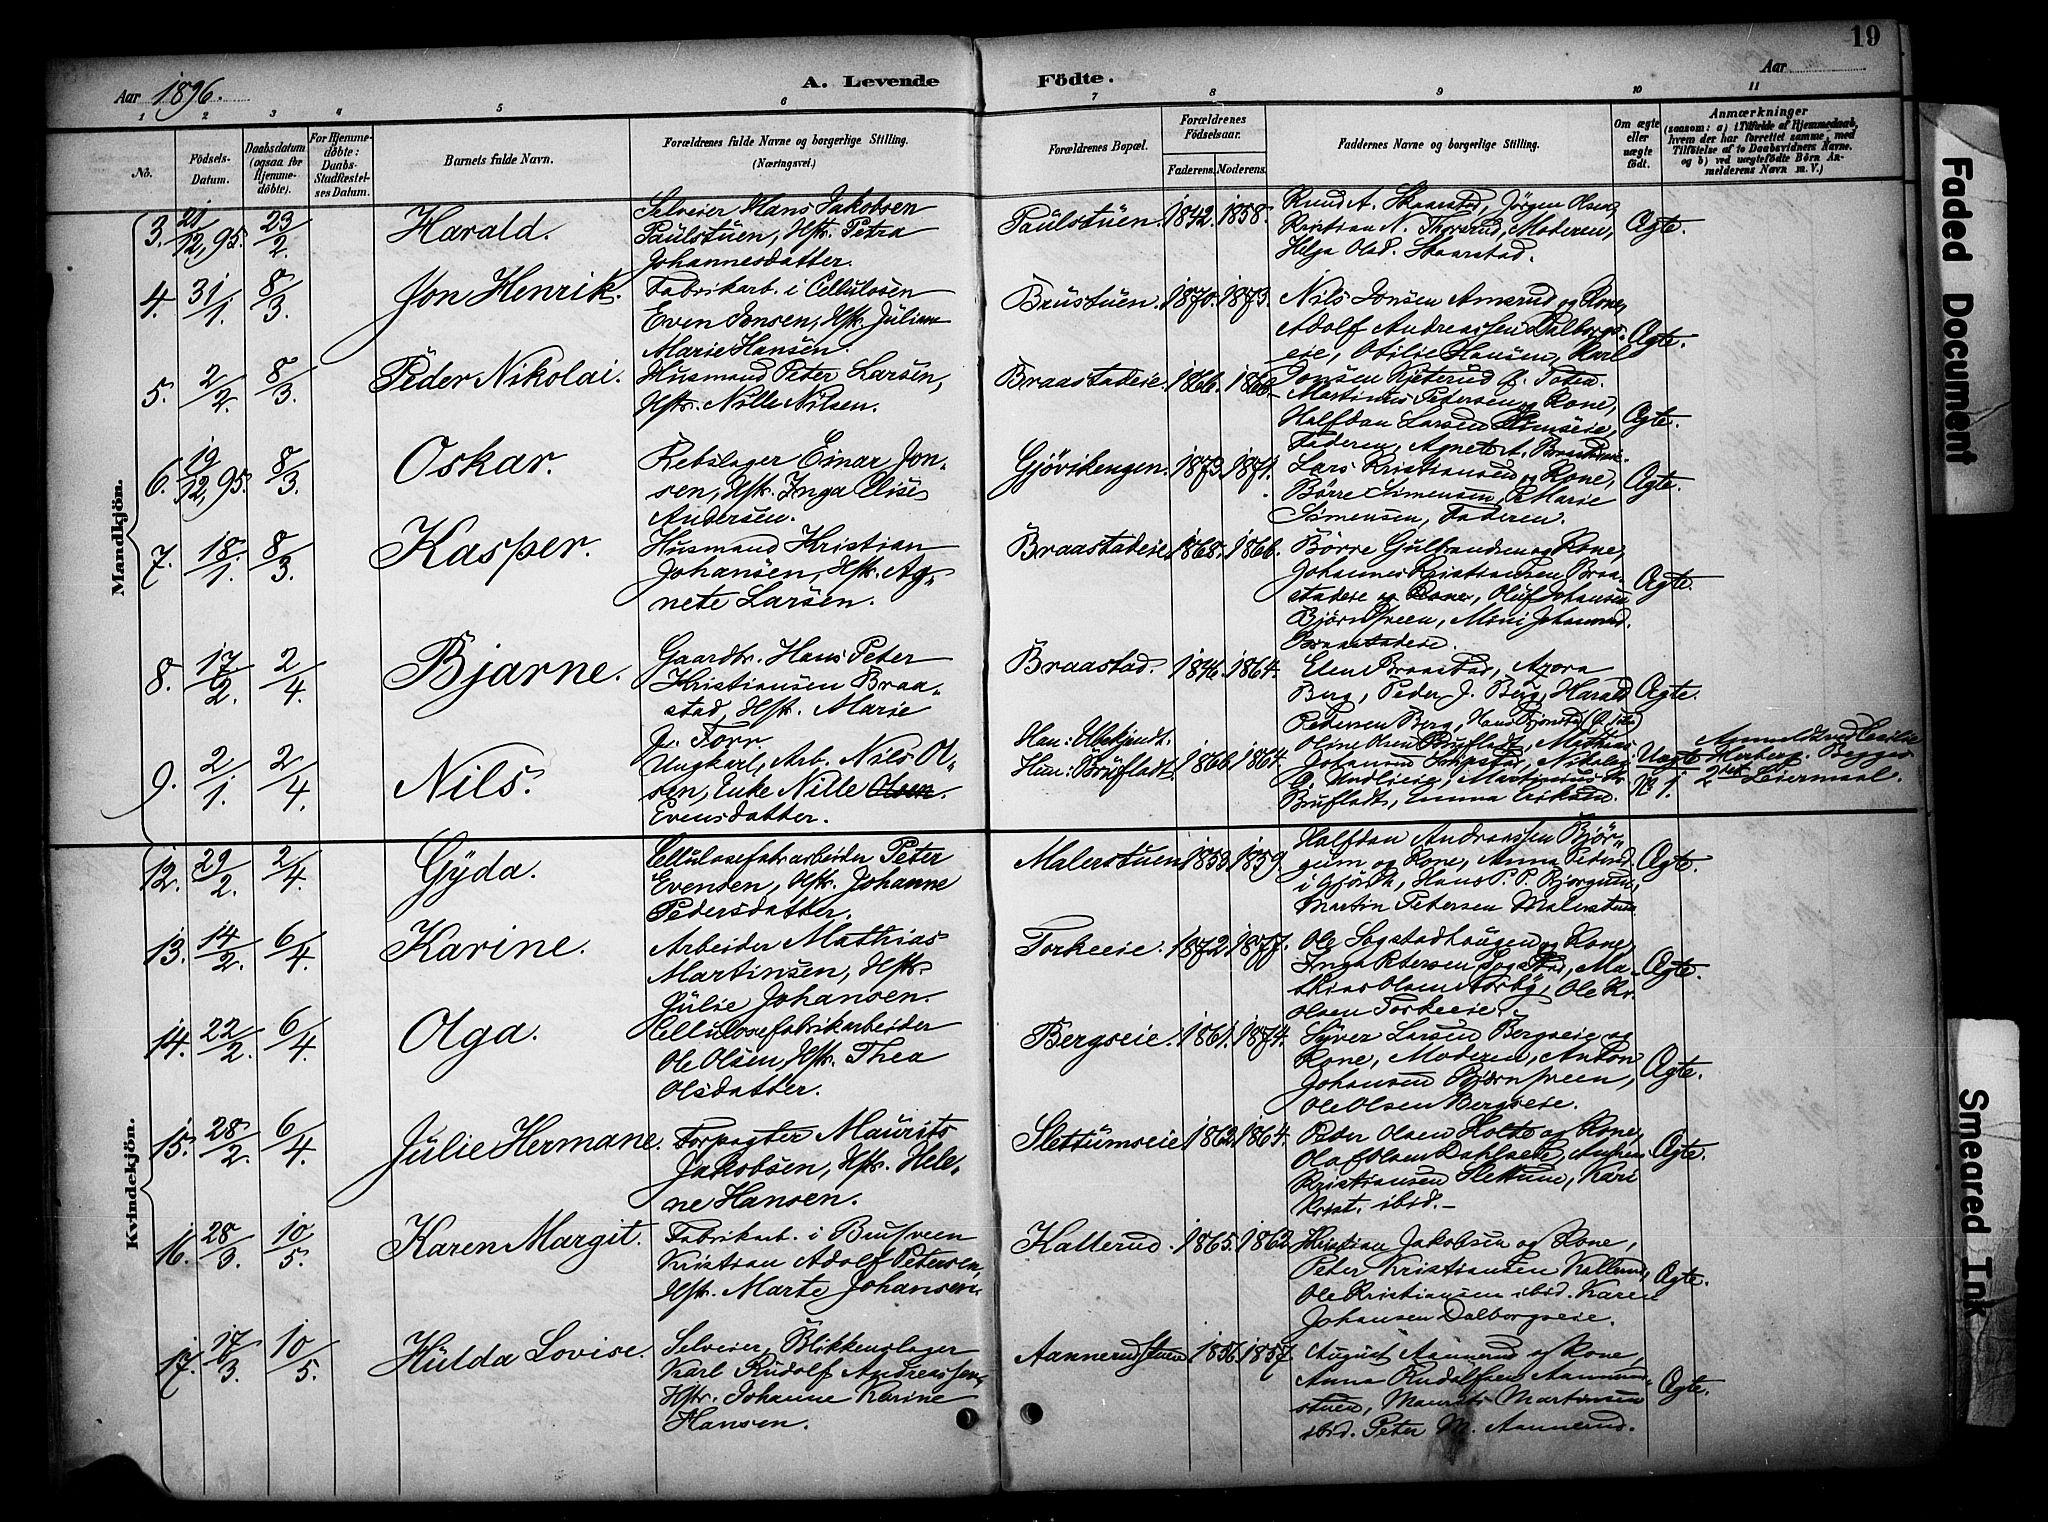 19
Aar 1896.
A. Levende Födte.
Aar
1 2 3 4 5 6 7 8 9 10 11
No.
Födsels-Datum.
Daabsdatum (ogsaa for Hjemmedöbte).
For Hjemmedöbte: Daabs-Stadfæstelses Datum.
Barnets fulde Navn.
Forældrenes fulde Navne og borgerlige Stilling. (Næringsvei.)
Forældrenes Bopæl.
Forældrenes Födselsaar.
Faderens. Moderens.
Faddernes Navne og borgerlige Stilling.
Om ægte eller uægte födt.
Anmærkninger
(saasom: a) i Tilfælde af Hjemmedaab, hvem der har forrettet samme, med Tilföielse af to Daabsvidners Navne. og b) ved uægtefödte Börn Anmelderens Navn m. V.)
Mandkjön.
3. 20/12,95. 23/2. Harald.
Selveier Hans Jakobsen
Paulstuen, Hst. Petra
Johannesdatter.
Paulstuen. 1842. 1858.
Knud A. Skaarstad, Jörgen Olsen,
Kristian N. Thorsrud, Moderen,
Helga Olsd. Skaarstad.
Ægte.
4. 31/1. 8/3. Jon Henrik.
Fabrikarb. i Cellulosen
Even Jonsen, Hst. Juliane
Marie Hansen.
Brustuen. 1870. 1873.
Nils Jonsen Amsrud og Kone,
Adolf Andreassen Dalborgs-
eie, Otilie Hansen, Karl
Jonsen Kjeterud Ö. Toten.
Ægte.
5. 2/2. 8/3. Peder Nikolai.
Husmand Peter Larsen,
Hst. Nille Nilsen.
Braastadeie. 1866. 1868.
Martinus Petersen og Kone,
Halfdan Larsen
Faderen, Agnethe A.
Ægte.
6. 19/12,95. 8/3. Oskar.
Rebslager Einar Jon-
sen, Hst. Inga Elise
Andersen.
Gjövikengen. 1873. 1871.
Lars Kristiansen og Kone,
Börre Simensen, Marie
Simensen, Faderen.
Ægte.
7. 18/1. 8/3. Kasper.
Husmand Kristian
Johansen, Hst. Ag-
nete Larsen.
Braastadeie. 1868. 1866.
Börre Gulbrandsen og Kone,
Johannes Kristiansen Braa-
stadeie og Kone, Oluf Johansen
Björnsveen, Mina Johansen
Braastadeie.
Ægte.
8. 17/2. 2/4. Bjarne.
Gaardbr. Hans Peter
Kristiansen Braa-
stad, Hst. Marie
f. Forr.
Braastad. 1846. 1864.
Elen Braastad, Agora
Berg, Peder J. Berg, Harald
Pedersen Berg, Hans
Ægte.
9. 2/1. 2/4. Nils.
Ungkarl, Arb. Nils Ol-
sen, Enke Nille Olsen
Evensdatter.
Han: Ubekjendt.
Hun: Brufladt. 1866. 1864.
Oline Olsen Brufladt, Mathias
Johansen
Brufladt, Emma Eriksen.
Uægte
Anmeldt ved Cecilie
Herberg. Begges
2det Leiermaal.
Kvindekjön.
12. 29/2. 2/4. Gyda.
Cellulosefabrarbeider Peter
Evensen, Hst. Johanne
Pedersdatter.
Malerstuen. 1853. 1859.
Halfdan Andreassen Björ-
gum og Kone, Anna Pedersd.
i Gjövik, Hans P. P. Bjorgum,
Martin Petersen Malerstuen
Ægte.
13. 14/2. 6/4. Karine.
Arbeider Mathias
Martinsen, Hst.
Julie Johansen.
Torkeeie. 1872. 1877.
Ole Sogstadhaugen og Kone,
Inga Petersen Sogstad, Ma-
thias Olsen Torby, Ole Kr.
Olsen Torkeeie.
Ægte.
14. 22/2. 6/4. Olga.
Cellulosefabrikarbeider
Ole Olsen, Hst. Thea
Olsdatter.
Bergseie. 1861. 1874.
Syver Larsen Bergseie og
Kone, Moderen, Anton
Johansen Björnsveen,
Ole Olsen Bergseie.
Ægte.
15. 28/2. 6/4. Julie Hermane.
Forpagter Maurits
Jakobsen, Hst. Hele-
ne Hansen.
Slettumseie 1862. 1864.
Peder Olsen Holte og Kone,
Olaf Olsen Dahlseie, Anders
Kristiansen Slettum, Kari
Krist. ibid.
Ægte.
16. 28/3. 10/5. Karen Margit.
Fabrikarb. i Brusveen
Kristian Adolf Petersen,
Hst. Marte Johansen.
Kallerud. 1865. 1862.
Kristian Jakobsen og Kone,
Peter Kristiansen Kallerud,
Ole Kristiansen ibid. Karen
Johansen Dalborgseie.
Ægte.
17. 17/3. 10/5. Hulda Lovise.
Selveier, Blikkenslager
Karl Rudolf Andreassen,
Hst. Johanne Karine
Hansen.
Aannerudstuen 1856. 1857.
August Aannerud og Kone,
Anna Rudolfsen Aannerud-
stuen, Maurits Martinsen
ibid. Peter M. Aannerud.
Ægte.
Faded Document
Smeared Ink